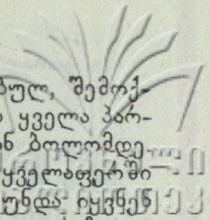 ბულ, შემოქ-
ყველა პარ-
ან ბოლომდე
ყველაფერში
უნდა იყვნენ